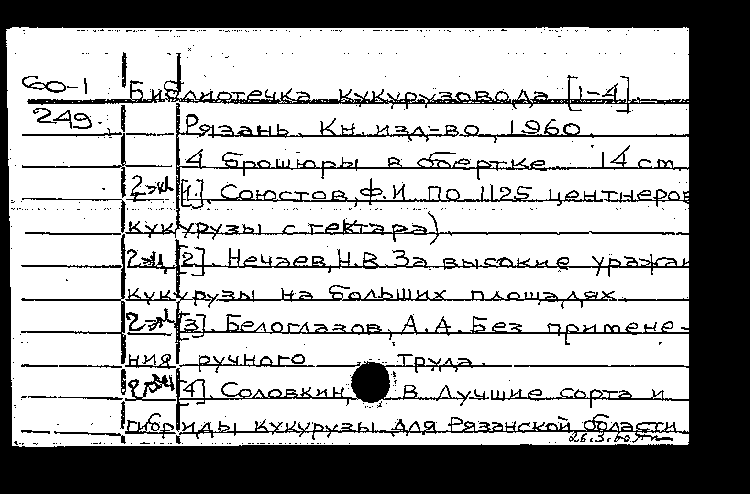 60-1 Библиотечка кукурузовода [1-4].
249. Рязань. Кн. изд-во, 1960.
4 брошюры в обертке 14 см.
2 эк [1]. Союстов, Ф.И. По 1125 центнеров
кукурузы с гектара).
2 эк [2]. Нечаев, Н.В. За высокие урожаи
кукурузы на больших площадях.
2 эк [3]. Белоглазов, А.А. Без примене-
ния ручного труда.
[4]. Соловкин, В Лучшие сорта и
гибриды кукурузы для Рязанской области
26.3.60